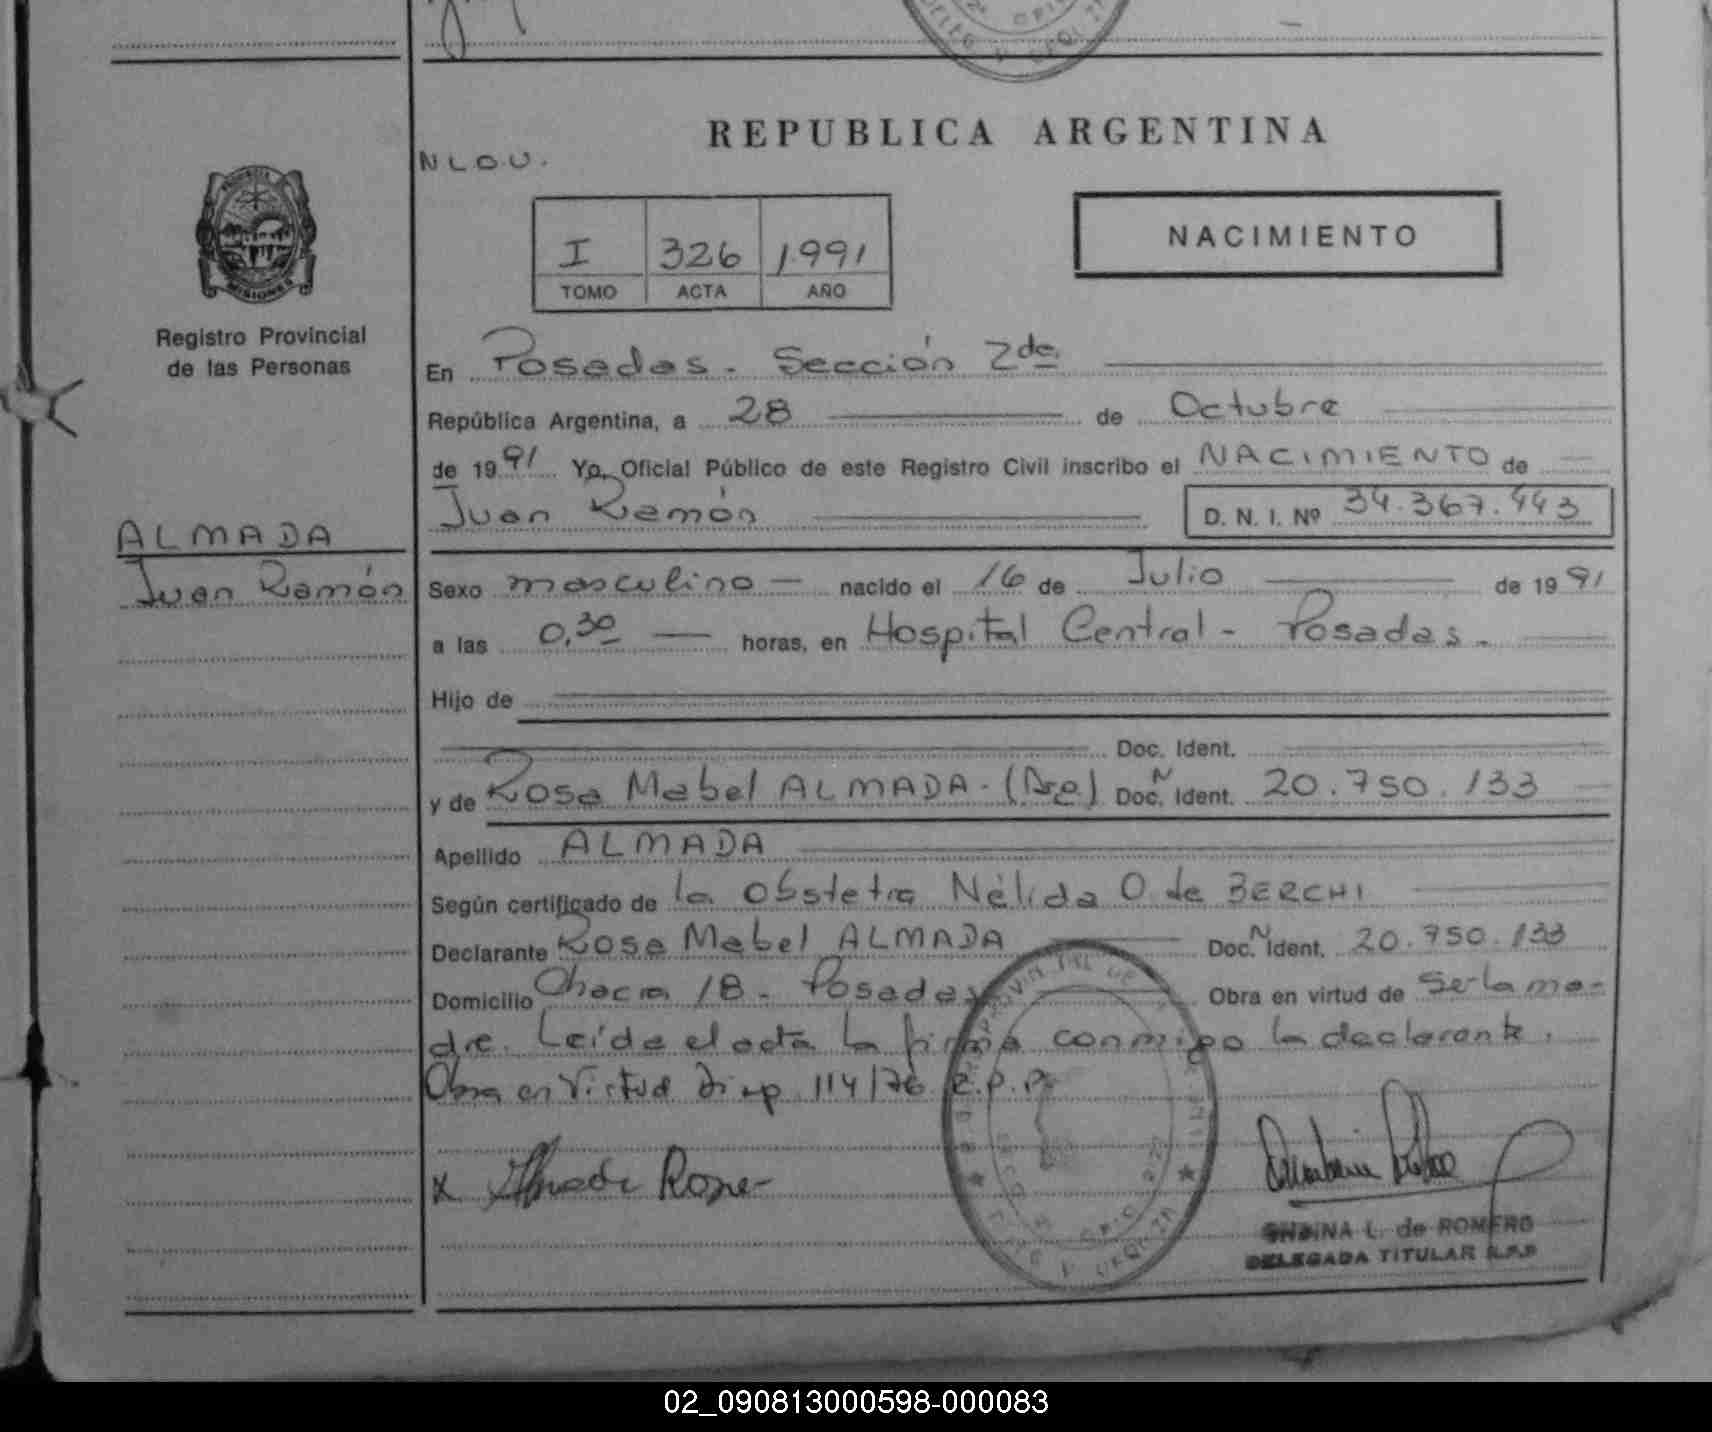 REPUBLICA ARGENTINA
N L O. U.
I 326 1991
TOMO ACTA AÑO
NACIMIENTO
PROVINCIA
MISIONES
Registro Provincial
de las Personas
En Posadas. Sección 2da.
República Argentina, a 28 de Octubre
de 1991 Yo, Oficial Público de este Registro Civil inscribo el NACIMIENTO de
Juan Ramón D. N. I. Nº 34.367.443
ALMADA
Juan Ramón
Sexo masculino nacido el 16 de Julio de 1991
a las 0,30 horas, en Hospital Central - Posadas.
Hijo de
Doc. Ident.
y de Rosa Mabel ALMADA. (Arg.) Doc. N Ident. 20.750.133
Apellido ALMADA
Según certificado de la obstetra Nélida O. de BERCHI
Declarante Rosa Mabel ALMADA Doc. N Ident. 20.750.133
Domicilio Chacra 18 - Posadas Obra en virtud de Ser la ma-
dre. Leída el acta la firma conmigo la declarante.
Obra en Virtud Disp. 114/76 R.P.P.
x Almada Rosa
L. de ROMERO
DELEGADA TITULAR R.P.P
02_090813000598-000083